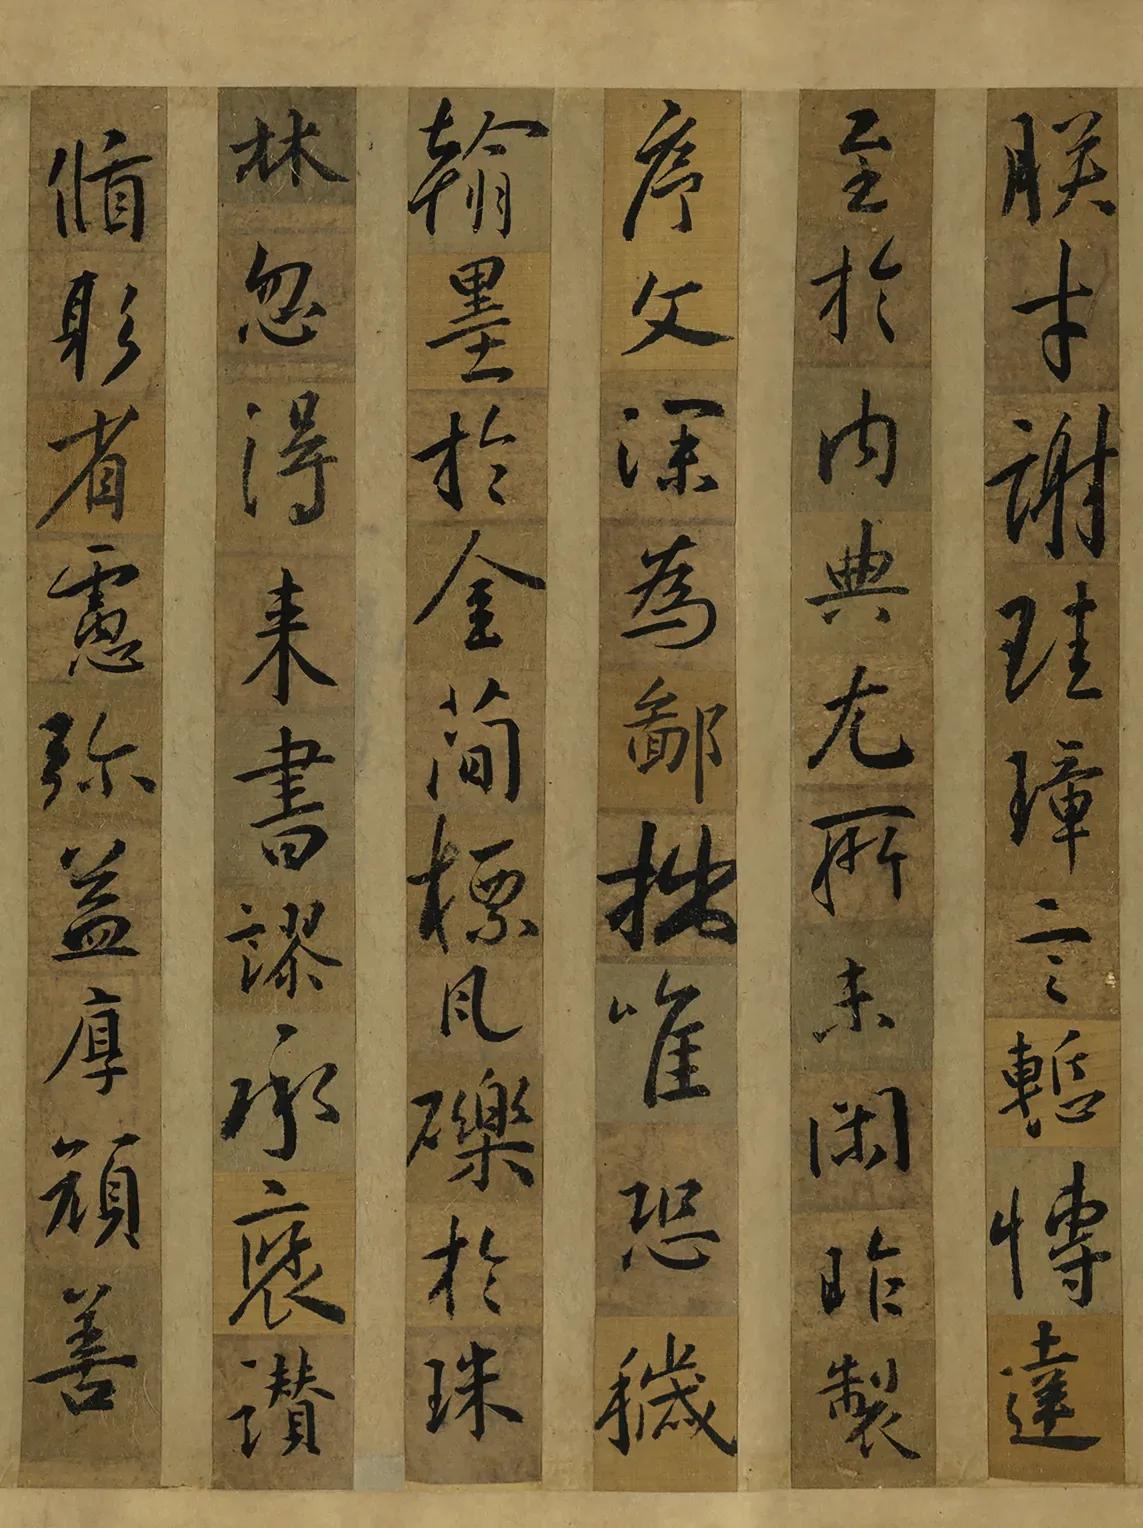 朕才謝珪璋言慙博達
至於內典尤所未閑昨製
序文深為鄙拙唯恐穢
翰墨於金簡標瓦礫於珠
林忽得来書謬承褒讃
循躬省慮弥益厚顏善